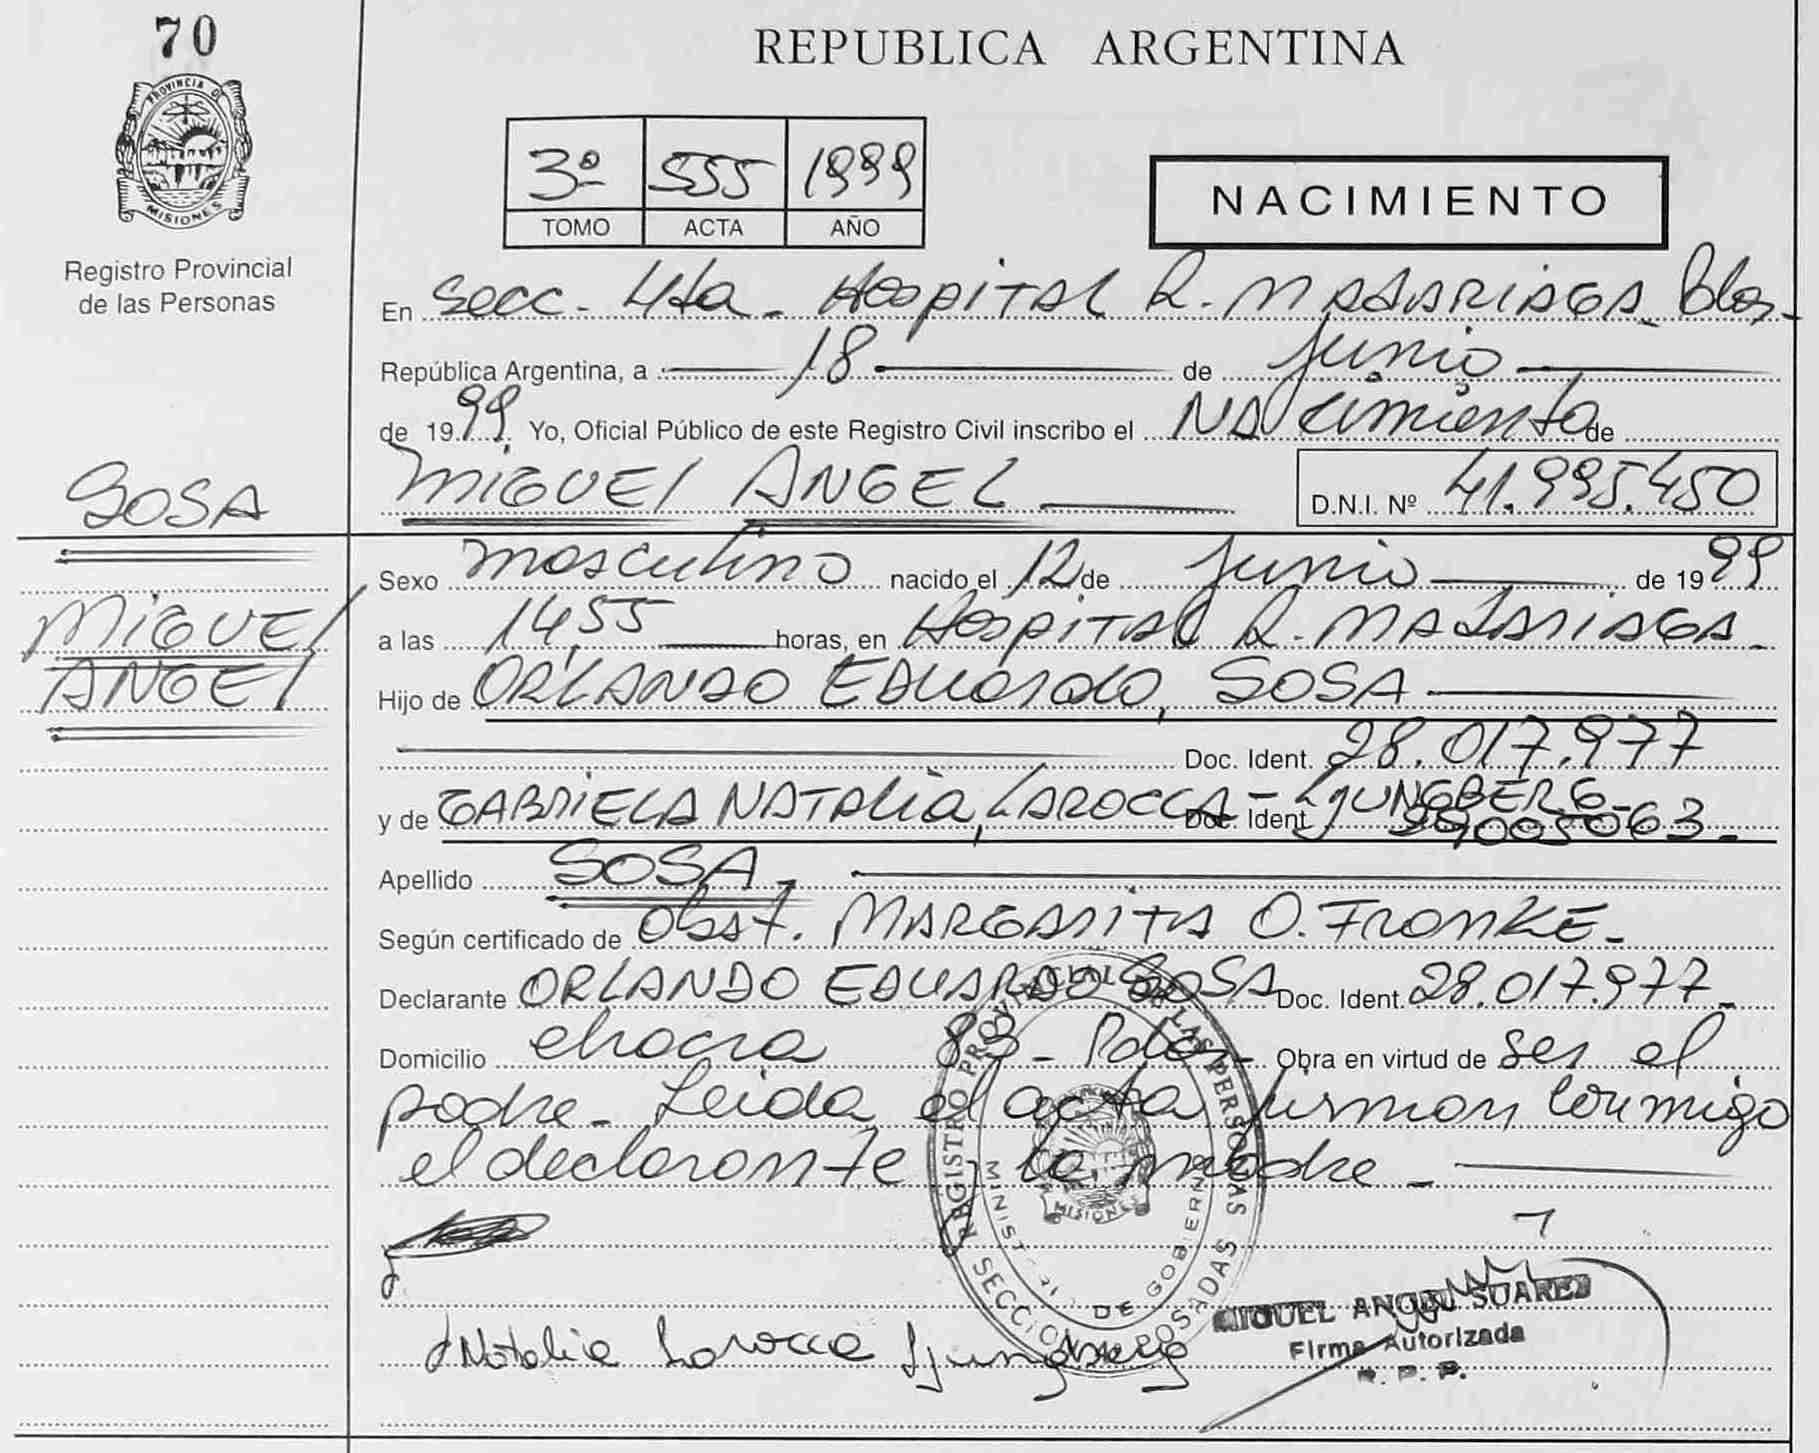 70
REPUBLICA ARGENTINA
PROVINCIA DE
MISIONES
Registro Provincial
de las Personas
3º 555 1999
TOMO ACTA AÑO
NACIMIENTO
En Secc. 4ta. Hospital R. MADARIAGA. Pdas.
República Argentina, a 18 de junio
de 1999. Yo, Oficial Público de este Registro Civil inscribo el NAcimiento de
SOSA
MIGUEL ANGEL D.N.I. Nº 41.995.450
Sexo masculino nacido el 12 de junio de 1999
MIGUEL
ANGEL
a las 14,55 horas, en Hospital R. MADARIAGA.
Hijo de ORLANDO EDUARDO, SOSA
Doc. Ident. 28.017.977
y de GABRIELA NATALIA, LAROCCA - LJUNGBERG Doc. Ident.
Apellido SOSA.
Según certificado de Obst. MARGARITA O. FRONKE.
Declarante ORLANDO EDUARDO SOSA Doc. Ident. 28.017.977.
Domicilio chacra 83 - Pdas. Obra en virtud de ser el
padre. Leida el acta firman conmigo
el declarante y la madre.
REGISTRO PROVINCIAL DE LAS PERSONAS
MINISTERIO DE GOBIERNO
MISIONES
SECCION POSADAS
Natalia Larocca Ljungberg
MIGUEL ANGEL SUAREZ
Firma Autorizada
R. P. P.